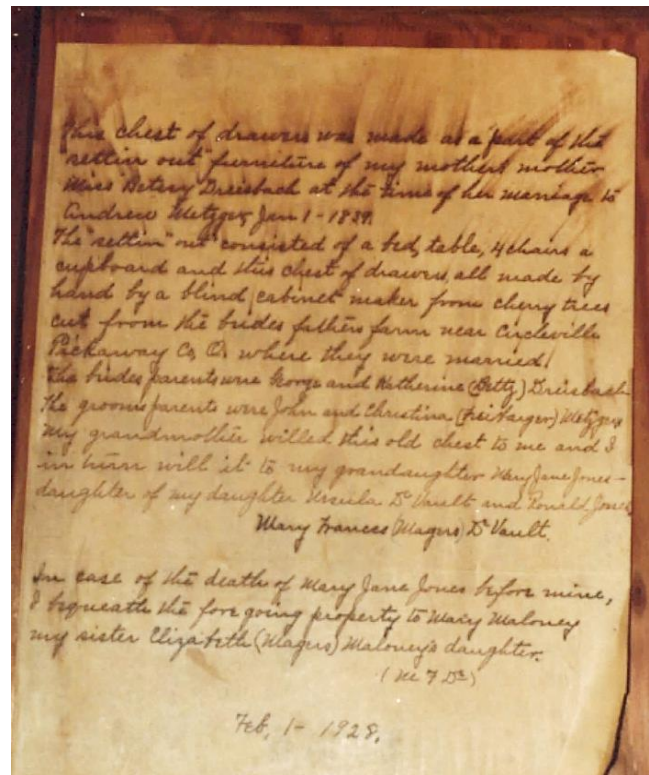 This chest of drawers was made as a part of the
"settin out" furniture of my mothers mother
Miss Betsey Dreisbach at the time of her marriage to
Andrew Metzger, Jan 1 - 1839.
The "settin" out consisted of a bed, table, 4 chairs a
cupboard and this chest of drawers, all made by
hand by a blind cabinet maker from cherry trees
cut from the brides fathers farm near Circleville
Pickaway Co, O. where they were married.
The brides parents were George and Katherine (Betty) Dreisbach
The grooms parents were John and Christina Metzger
My grandmother willed this old chest to me and I
in turn will it to my grandaughter Mary Jane Jones -
daughter of my daughter Ursula De Vault and Ronald Jones
Mary Frances (Magers) De Vault.
In case of the death of Mary Jane Jones before mine,
I bequeath the fore going property to Mary Maloney
my sister Elizabeth (Magers) Maloney's daughter.
(M F De)
Feb, 1 - 1928.